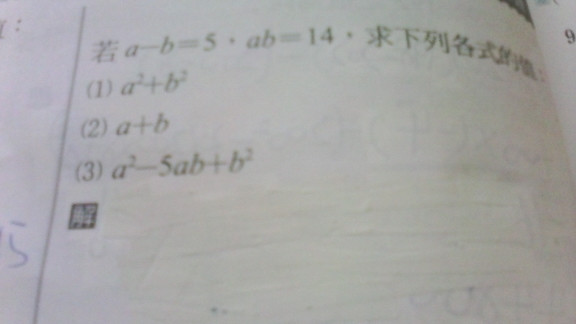 若 a−b=5，ab=14，求下列各式的值：
(1) a²+b²
(2) a+b
(3) a²−5ab+b²
解
5
9